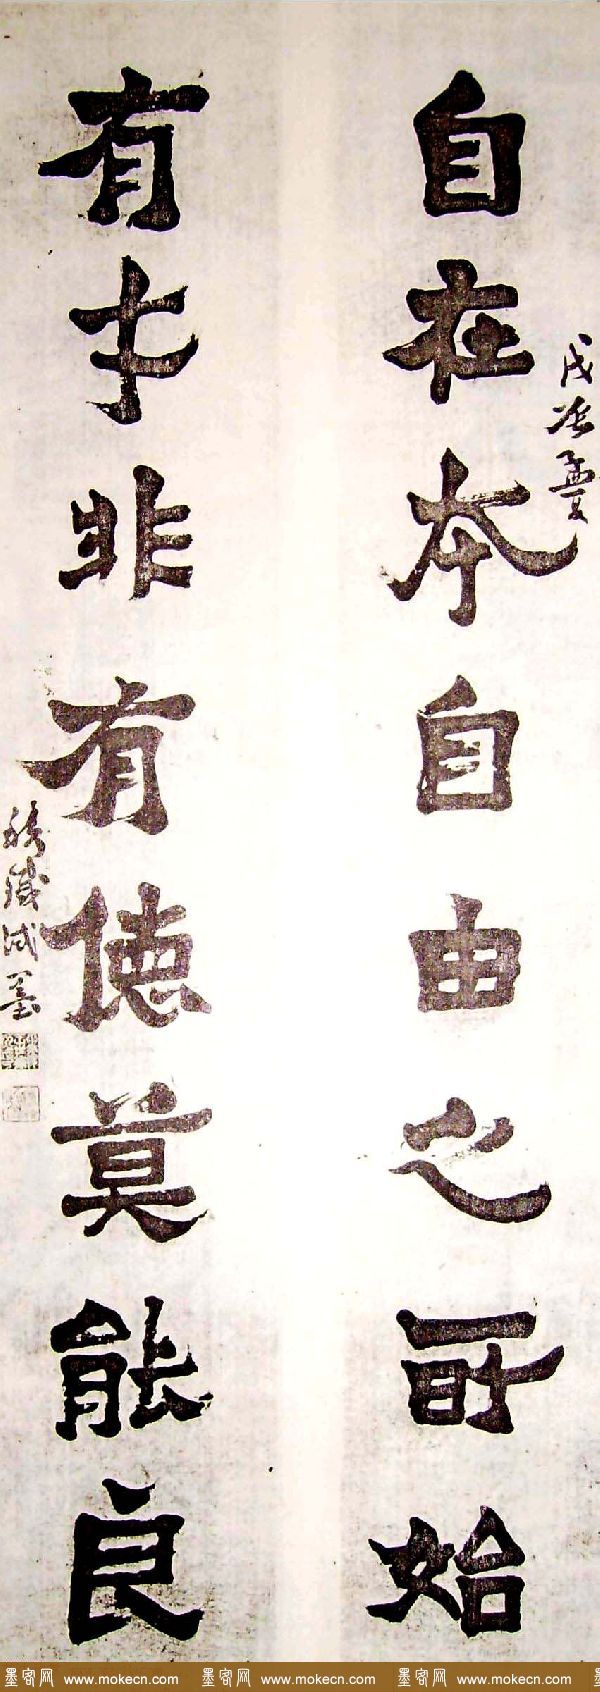 自在本自由之所始
戊次孟夏
有才非有德莫能良
铁减墨
墨客网 www.mokecn.com 墨客网 www.mokecn.com 墨客网 www.mokecn.com